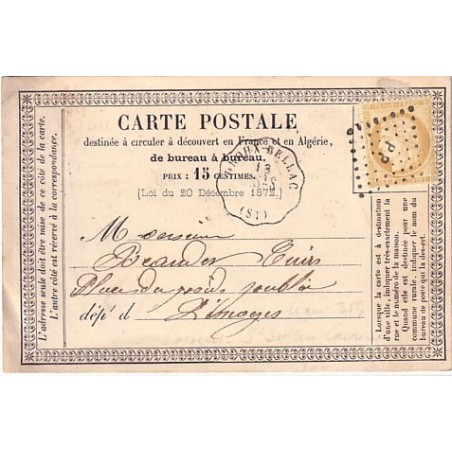 CARTE POSTALE
destinée à circuler à découvert en France et en Algérie,
de bureau à bureau.
PRIX : 15 CENTIMES.
(Loi du 20 Décembre 1872)
BELLAC
(81)
PP
Monsieur
place du
dépt d Limoges
L'adresse seule doit être mise de ce côté de la carte.
L'autre côté est réservé à la correspondance.
Lorsque la carte est à destination
d'une ville, indiquer très-exactement la
rue et le numéro de la maison.
Quand elle est destinée pour une
commune rurale, indiquer le nom du
bureau de poste qui la dessert.